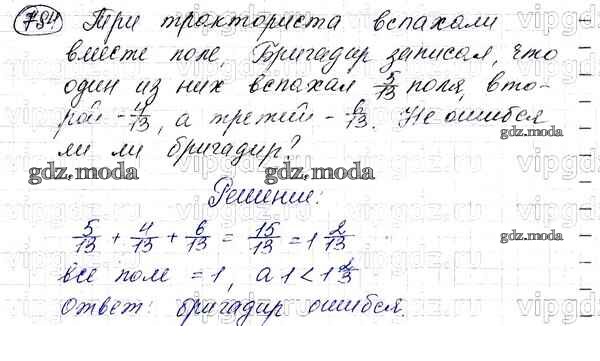 784 Три тракториста вспахали
вместе поле. Бригадир записал, что
один из них вспахал 5/13 поля, вто-
рой - 4/13, а третий - 6/13. Не ошибся
ли ли бригадир?
gdz.moda gdz.moda
Решение:
5/13 + 4/13 + 6/13 = 15/13 = 1 2/13
gdz.moda
все поле = 1, а 1 < 1 2/13
Ответ: бригадир ошибся.
gdz.moda